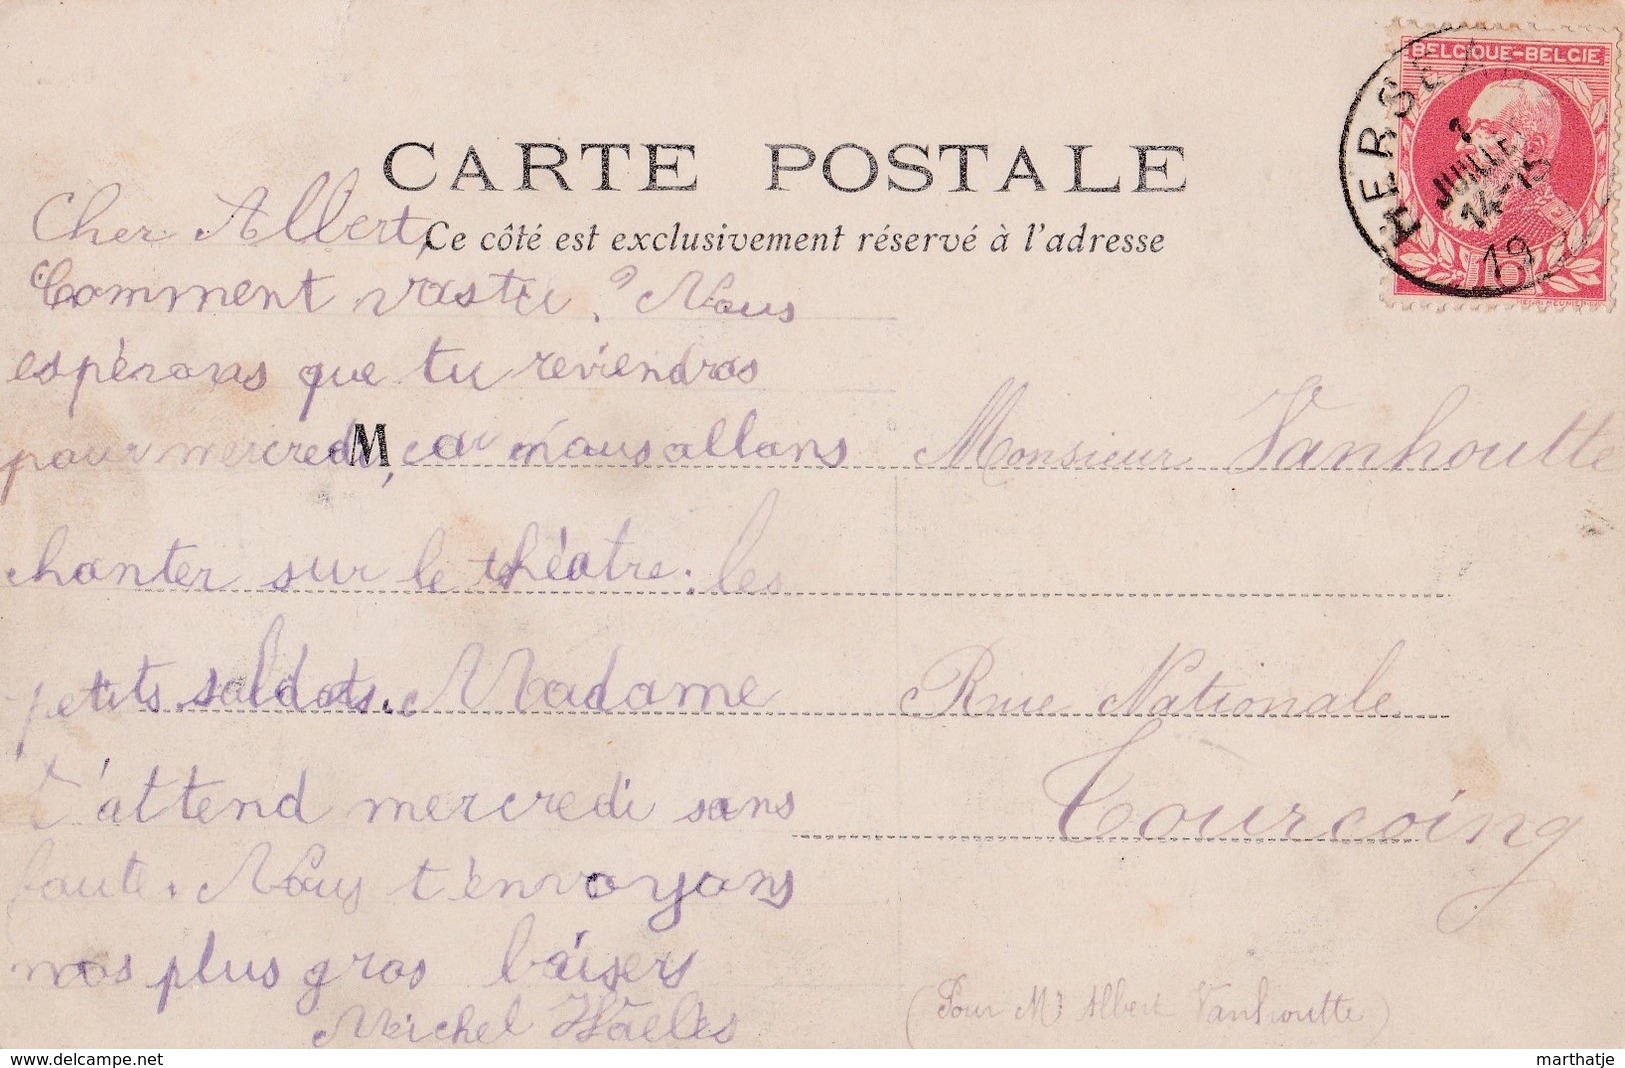 BELGIQUE-BELGIE
HERSEA
7
JUILLET
14-15
19
10
CARTE POSTALE
Ce côté est exclusivement réservé à l'adresse
Cher Albert,
Comment vastu? Nous
espérons que tu reviendras
pour mercredi, car nous allons
chanter sur le théatre: les
petits soldats. Madame
t'attend mercredi sans
faute. Nous t'envoyons
nos plus gros baisers
Michel Waeles
M
Monsieur Vanhoutte
Rue Nationale
Tourcoing
(Pour Mr Albert Vanhoutte)
www.delcampe.net
marthatje